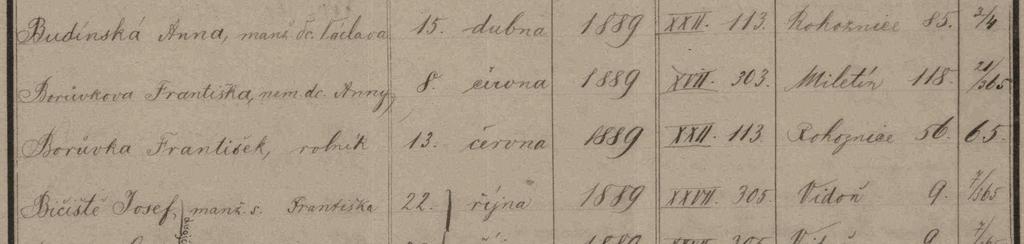 Budínská Anna, manž. dc. Václava 15. dubna 1889 XXII. 113. Rohoznice 85. 2/4
Borůvkova Františka, nem. dc. Anny, 8. června 1889 XVII. 303. Miletín 118. 21/365
Borůvka František, rolník 13. června 1889 XXII. 113. Rohoznice 56. 65.
Bičiště Josef, manž. s. Františka 22. října 1889 XXVII. 305. Vidoň 9. 7/365
1889 XXVII 305 9.